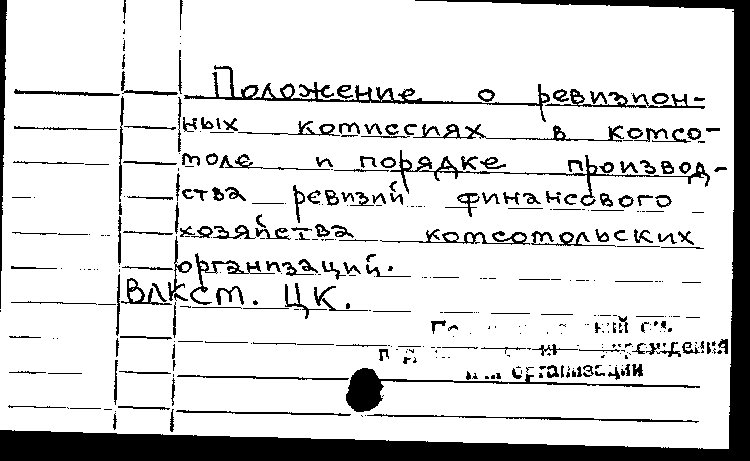 Положение о ревизион-
ных комиссиях в комсо-
моле и порядке производ-
ства ревизий финансового
хозяйства комсомольских
организаций.
ВЛКСМ. ЦК.
см.
учреждения
или организации